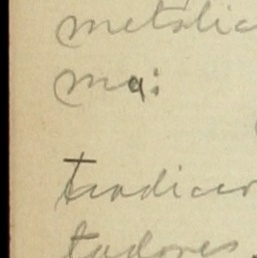 metalic
ma:
tradicio
tadores.